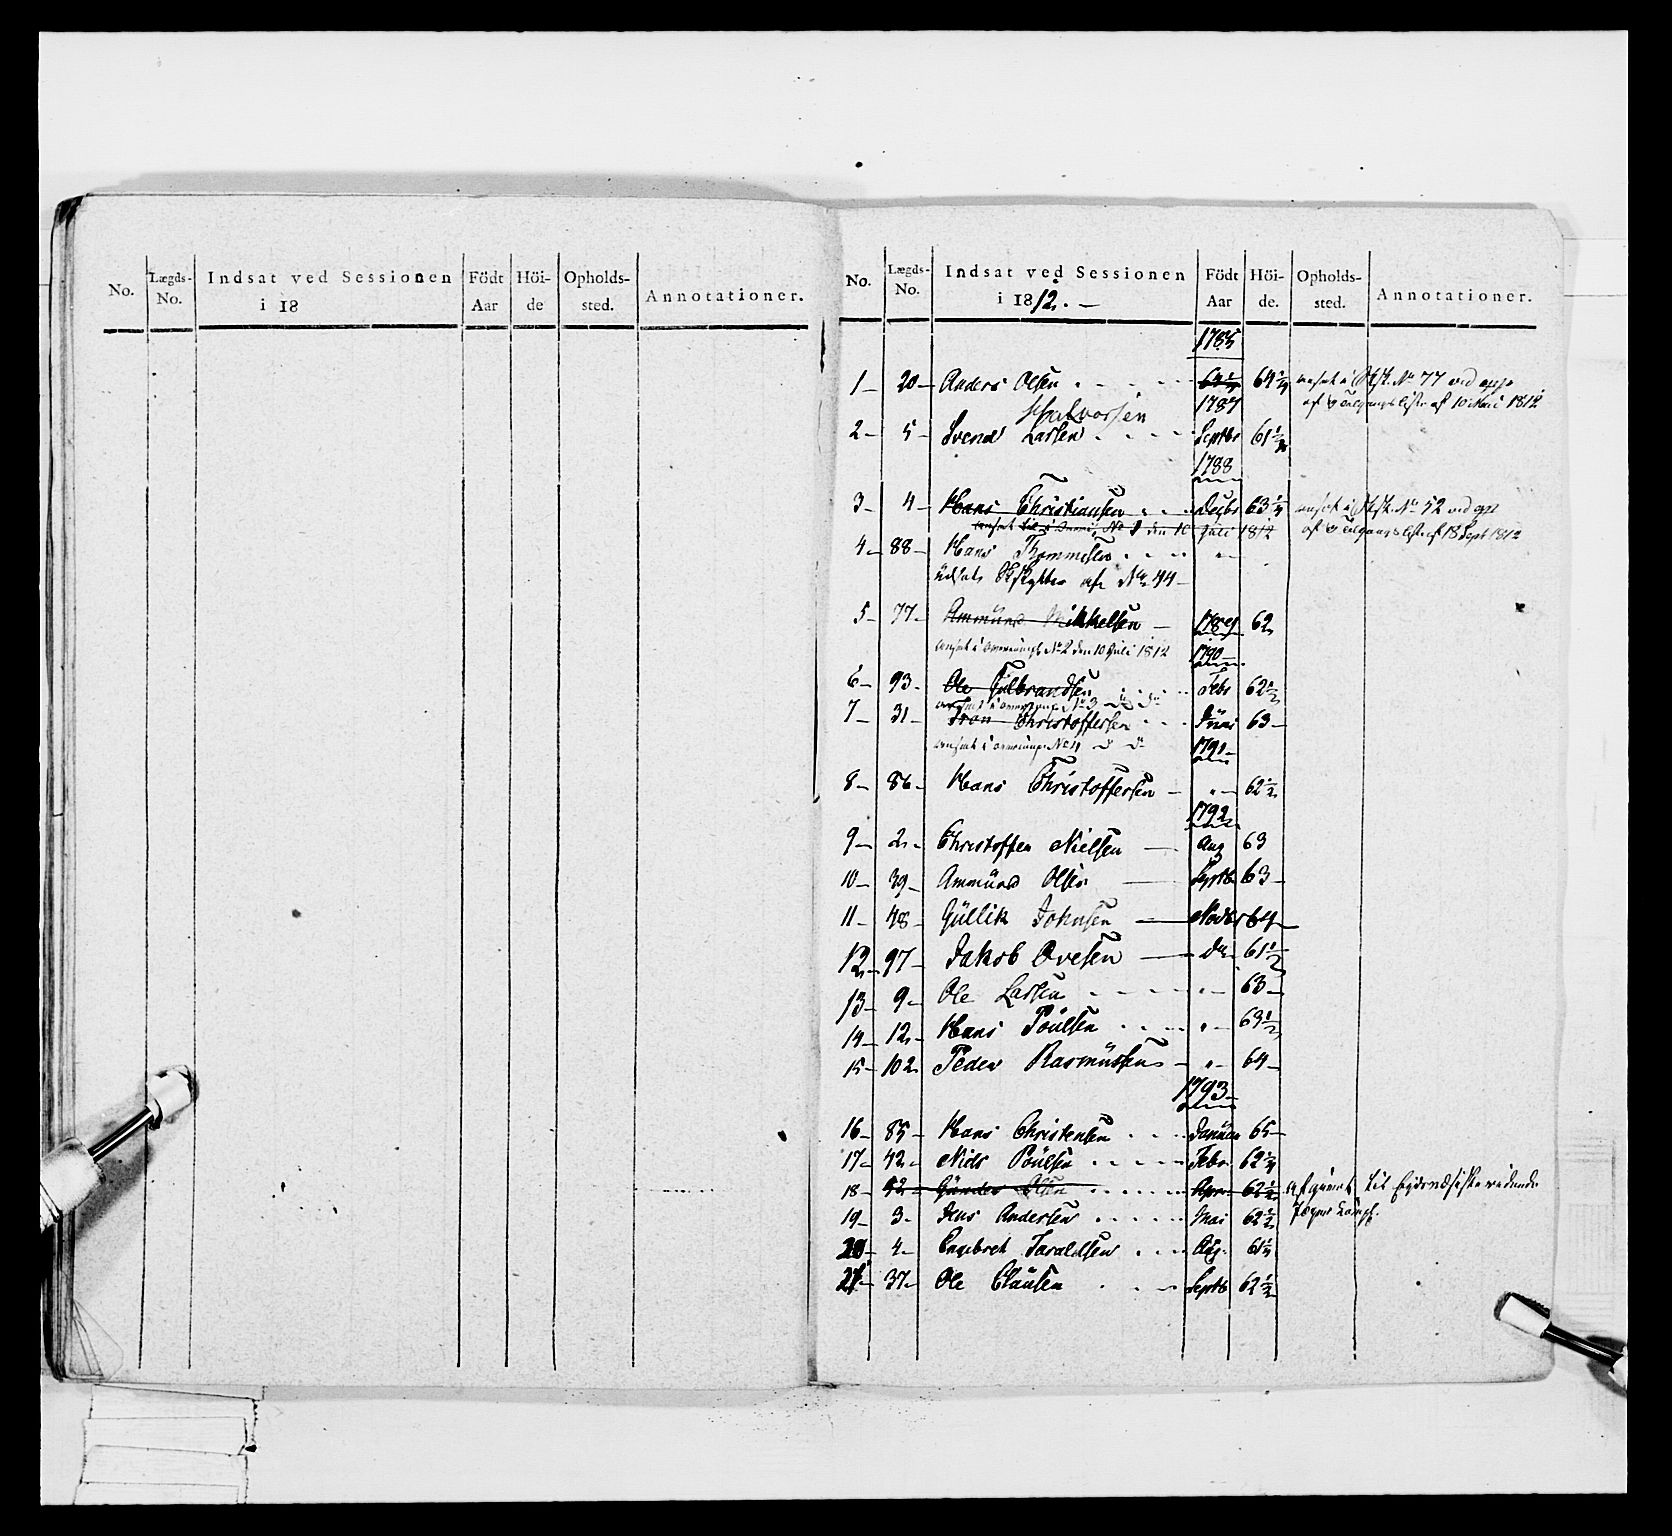 No. Lægds-No. Indsat ved Sessionen i 18 Födt Aar Höi-de Opholds-sted. Annotationer.
No. Lægds-No. Indsat ved Sessionen i 1812. Födt Aar Höi-de. Opholds-sted. Annotationer.
1785
1 20 Anders Olsen 64 1/4 64 1/4 ansat i No 77 ved
af Tilgangsliste af 10 1812
1787
Halvorsen
2 5 Svend Larsen Septbr 61
1788
3 4 Hans Christiansen Decbr 63 1/4 ansat i No 52 ved
af Tilgangsliste af 18 Sept 1812
ansat No 1 den 10 Juli 1812
4 88 Hans Thommesen "
No 44
5 77 Ammund Mikkelsen 1789 62
ansat i No 2 den 10 Juli 1812
1790
6 93 Ole Gulbrandsen Febr 62 1/2
ansat i No 3 d d
7 31 Iron Christoffersen Juni 63
ansat i No 4 d d
1791
8 86 Hans Christoffersen " 62 1/2
1792
9 2 Christoffer Nielsen Aug 63
10 39 Ammund Olsen Septb 63
11 48 Gullik Johnsen Novbr 64
12 97 Jakob Ovesen do 61 1/2
13 9 Ole Larsen " 63
14 12 Hans Poulsen " 63 1/2
15 102 Peder Rasmussen " 64
1793
16 85 Hans Christensen Januar 65
17 42 Niels Poulsen Febr 62 1/4
18 92 Gunder Olsen Apr 62 1/2 afgivet til ridende
Jæger
19 3 Jens Andersen Mai 62 1/2
20 4 Engebret Taraldsen Aug. 61 1/4
21 37 Ole Clausen Septb 62 1/2